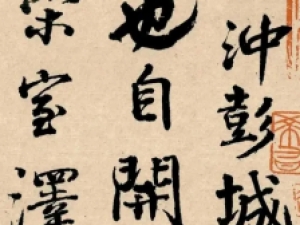 沖彭城
也自開
榮室澤